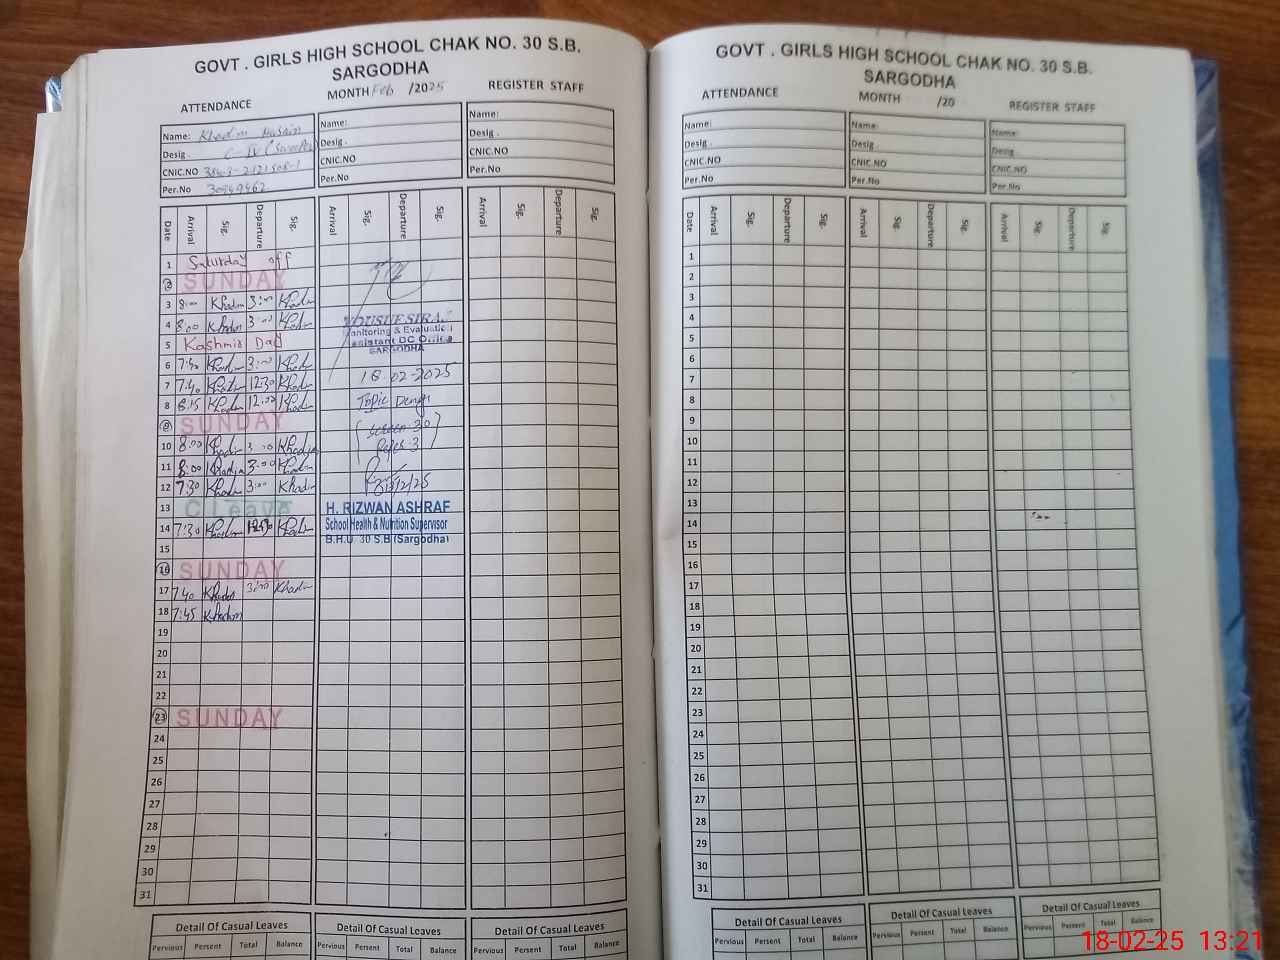 GOVT . GIRLS HIGH SCHOOL CHAK NO. 30 S.B.
SARGODHA
ATTENDANCE MONTH Feb /2025 REGISTER STAFF
Name: Khadim Hussain
Desig . C-IV
CNIC.NO
Per.No
Name:
Desig .
CNIC.NO
Per.No
Name:
Desig .
CNIC.NO
Per.No
Date Arrival Sig. Departure Sig. Arrival Sig. Departure Sig. Arrival Sig. Departure Sig
1 Saturday off
2 SUNDAY
3 8:00 Khadim 3:00 Khadim
4 8:00 Khadim 3:00 Khadim
5 Kashmir Day
6 7:40 Khadim 3:00 Khadim
7 7:40 Khadim 12:30 Khadim
8 8:15 Khadim 12:00 Khadim
9 SUNDAY
10 8:00 Khadim 3:00 Khadim
11 8:00 Khadim 3:00 Khadim
12 7:30 Khadim 3:00 Khadim
13 C Leave
14 7:30 Khadim 12:30 Khadim
15
16 SUNDAY
17 7:40 Khadim 3:00 Khadim
18 7:45 Khadim
19
20
21
22
23 SUNDAY
24
25
26
27
28
29
30
31
Monitoring & Evaluation
Assistant DC Office
SARGODHA
18-02-2025
Topic Dengi
H. RIZWAN ASHRAF
School Health & Nutrition Supervisor
B.H.U 30 S.B (Sargodha)
Detail Of Casual Leaves Detail Of Casual Leaves Detail Of Casual Leaves
Pervious Persent Total Balance Pervious Persent Total Balance Pervious Persent Total Balance
GOVT . GIRLS HIGH SCHOOL CHAK NO. 30 S.B.
SARGODHA
ATTENDANCE MONTH /20 REGISTER STAFF
Name:
Desig .
CNIC.NO
Per.No
Name:
Desig .
CNIC.NO
Per.No
Name:
Desig
CNIC.NO
Per.No
Date Arrival Sig. Departure Sig. Arrival Sig. Departure Sig. Arrival Sig. Departure Sig.
1
2
3
4
5
6
7
8
9
10
11
12
13
14
15
16
17
18
19
20
21
22
23
24
25
26
27
28
29
30
31
Detail Of Casual Leaves Detail Of Casual Leaves Detail Of Casual Leaves
Pervious Persent Total Balance Pervious Persent Total Balance Pervious Persent Total Balance
18-02-25 13:21